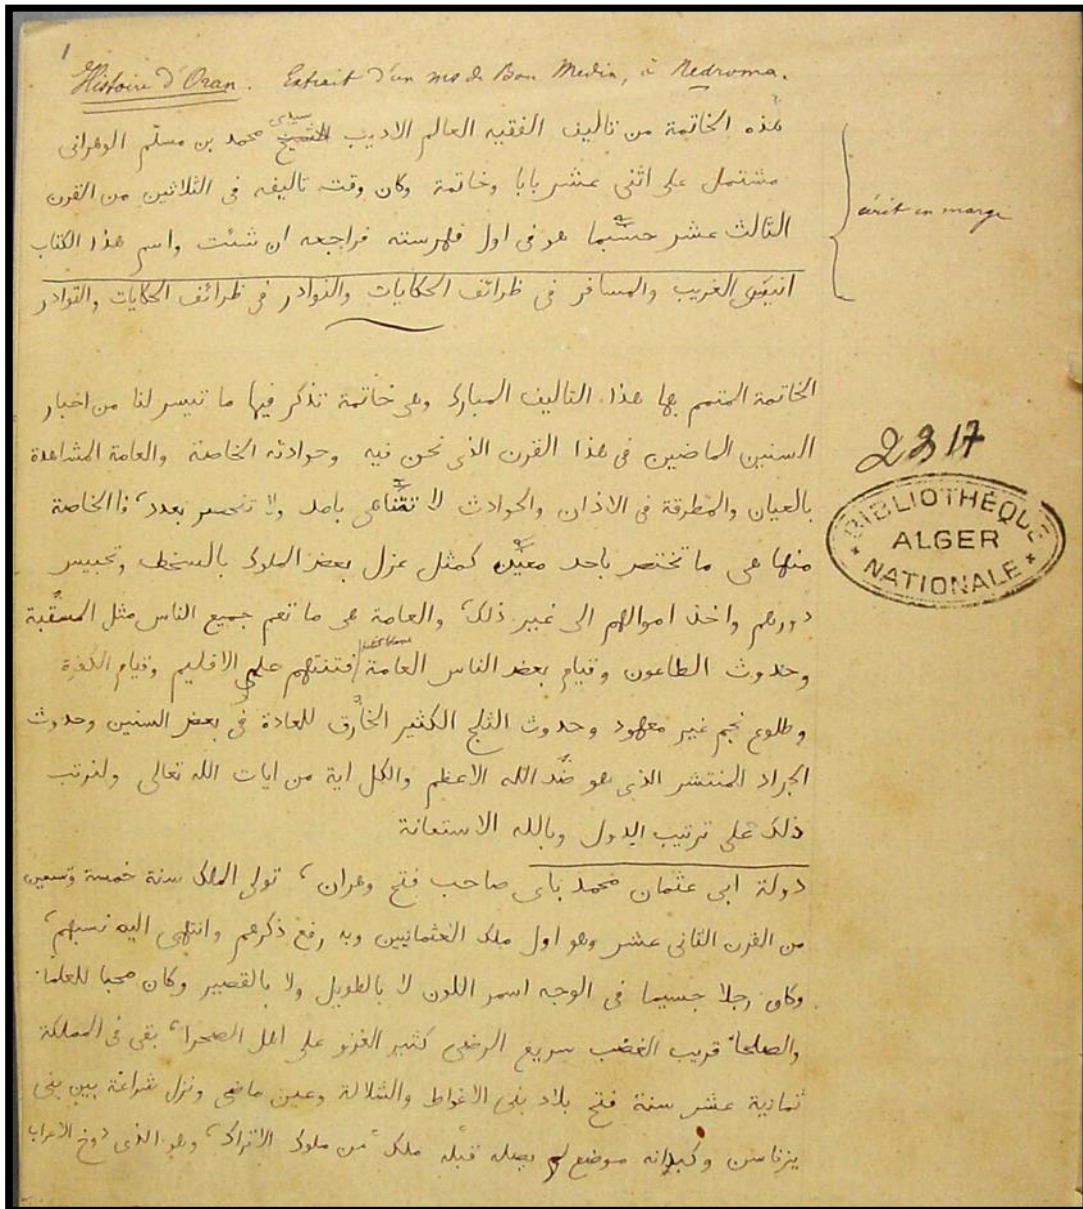 1
Histoire d'Oran. Extrait d'un ms de Bou Medin, à Nedroma.
هذه الخاتمة من تاليف الفقيه العالم الاديب سيدى محمد بن مسلم الوهرانى
مشتمل على اثنى عشر بابا وخاتمة وكان وقت تاليفه فى الثلاثين من القرن
الثالث عشر حسبما هو فى اول فهرسته فراجعه ان شئت واسم هذا الكتاب
انيس الغريب والمسافر فى ظرائف الحكايات والنوادر فى ظرائف الحكايات والنوادر
écrit en marge
الخاتمة المتمم بها هذا التاليف المبارك وهى خاتمة نذكر فيها ما تيسر لنا من اخبار
السنين الماضين فى هذا القرن الذى نحن فيه وحوادثه الخاصة والعامة المشاهدة
بالعيان والمطرقة فى الاذان والحوادث لا تتناهى بامد ولا تنحصر بعدد، فالخاصة
منها هى ما تختص باحد معين كمثل عزل بعض الملوك بالسخط وتحبيس
دورهم واخذ اموالهم الى غير ذلك، والعامة هى ما تعم جميع الناس مثل المسغبة
وحدوث الطاعون وقيام بعض الناس العامة فتنتهم على الاقليم وقيام الكفرة
وطلوع نجم غير معهود وحدوث الثلج الكثير الخارق للعادة فى بعض السنين وحدوث
الجراد المنتشر الذى هو جند الله الاعظم والكل اية من ايات الله تعالى ولنرتب
ذلك على ترتيب الدول وبالله الاستعانة
دولة ابى عثمان محمد باى صاحب فتح وهران، تولى الملك سنة خمسة وتسعين
من القرن الثانى عشر وهو اول ملك العثمانيين وبه رفع ذكرهم وانتهى اليه نسبهم،
وكان رجلا جسيما فى الوجه اسمر اللون لا بالطويل ولا بالقصير وكان محبا للعلماء
والصلحاء قريب الغضب سريع الرضى كثير الغزو على اهل الصحراء، بقى فى المملكة
ثمانية عشر سنة فتح بلاد بنى الاغواط والشلالة وعين ماضى ونزل شراعة بين بنى
يزناسن وكبدانه موضع لم يصله قبله ملك من ملوك الاتراك، وهو الذى دوخ الاعراب
2317
BIBLIOTHÈQUE
ALGER
NATIONALE